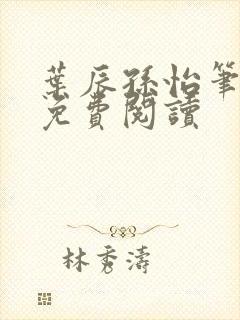 葉辰孫怡筆
免費閱讀
林秀濤